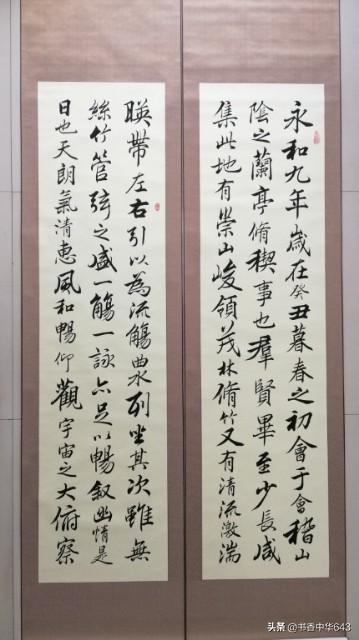 永和九年歲在癸丑暮春之初會于會稽山
陰之蘭亭脩稧事也羣賢畢至少長咸
集此地有崇山峻領茂林脩竹又有清流激湍
暎帶左右引以為流觴曲水列坐其次雖無
絲竹管弦之盛一觴一詠亦足以暢敘幽情是
日也天朗氣清惠風和暢仰觀宇宙之大俯察
头条 @书香中华643